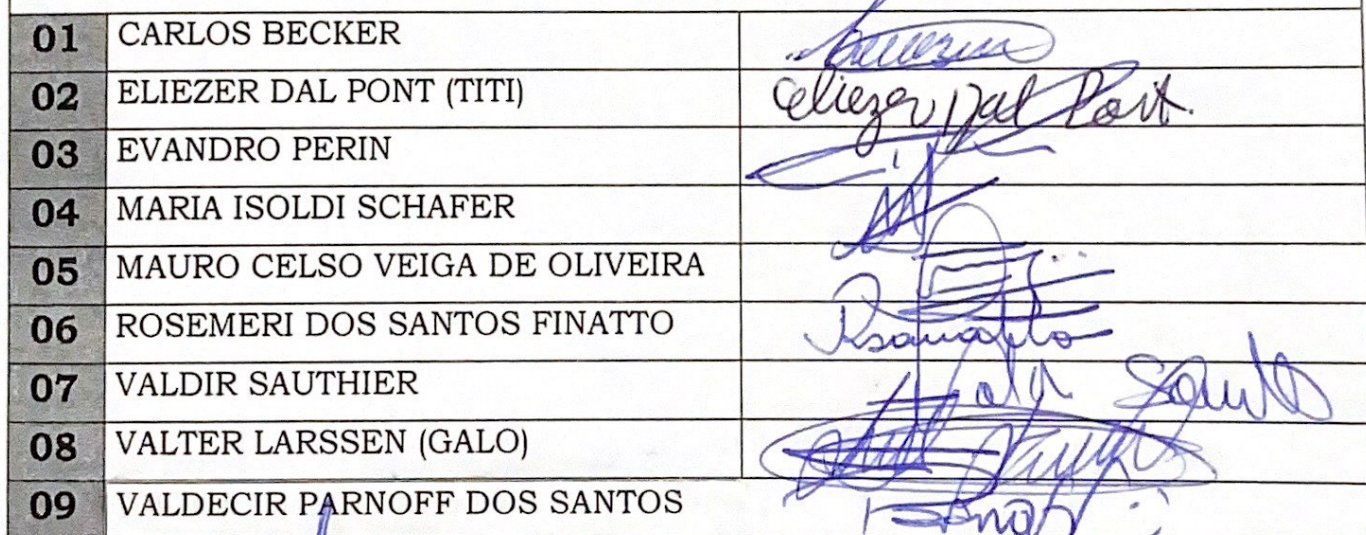 01 CARLOS BECKER
02 ELIEZER DAL PONT (TITI) Eliezer Dal Pont.
03 EVANDRO PERIN
04 MARIA ISOLDI SCHAFER
05 MAURO CELSO VEIGA DE OLIVEIRA
06 ROSEMERI DOS SANTOS FINATTO
07 VALDIR SAUTHIER
08 VALTER LARSSEN (GALO)
09 VALDECIR PARNOFF DOS SANTOS